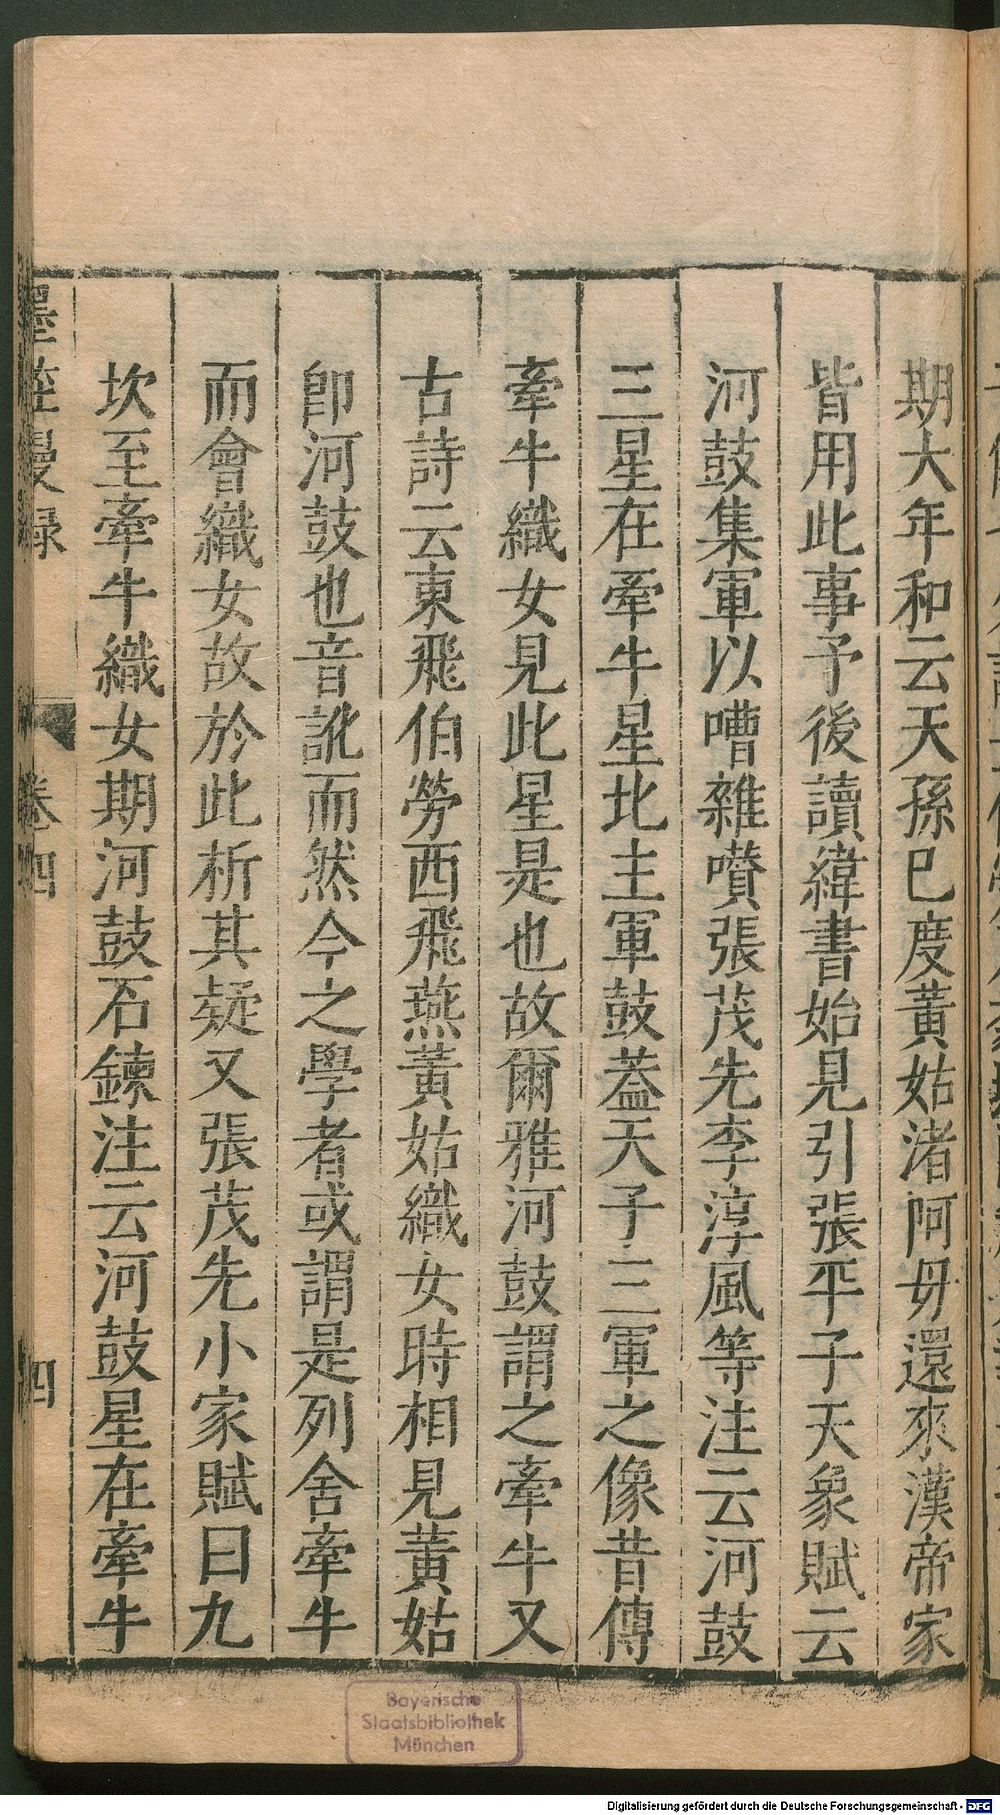 期大年和云天孫已度黃姑渚阿母還來漢帝家
皆用此事予後讀緯書始見引張平子天象賦云
河鼓集軍以嘈雜囋張茂先李淳風等注云河鼓
三星在牽牛星北主軍鼓葢天子三軍之像昔傳
牽牛織女見此星是也故爾雅河鼓謂之牽牛又
古詩云東飛伯勞西飛燕黃姑織女時相見黃姑
卽河鼓也音訛而然今之學者或謂是列舍牽牛
而會織女故於此析其疑又張茂先小家賦曰九
坎至牽牛織女期河鼓石鍊注云河鼓星在牽牛
墨莊漫録 卷四 四
Bayerische
Staatsbibliothek
München
Digitalisierung gefördert durch die Deutsche Forschungsgemeinschaft - DFG